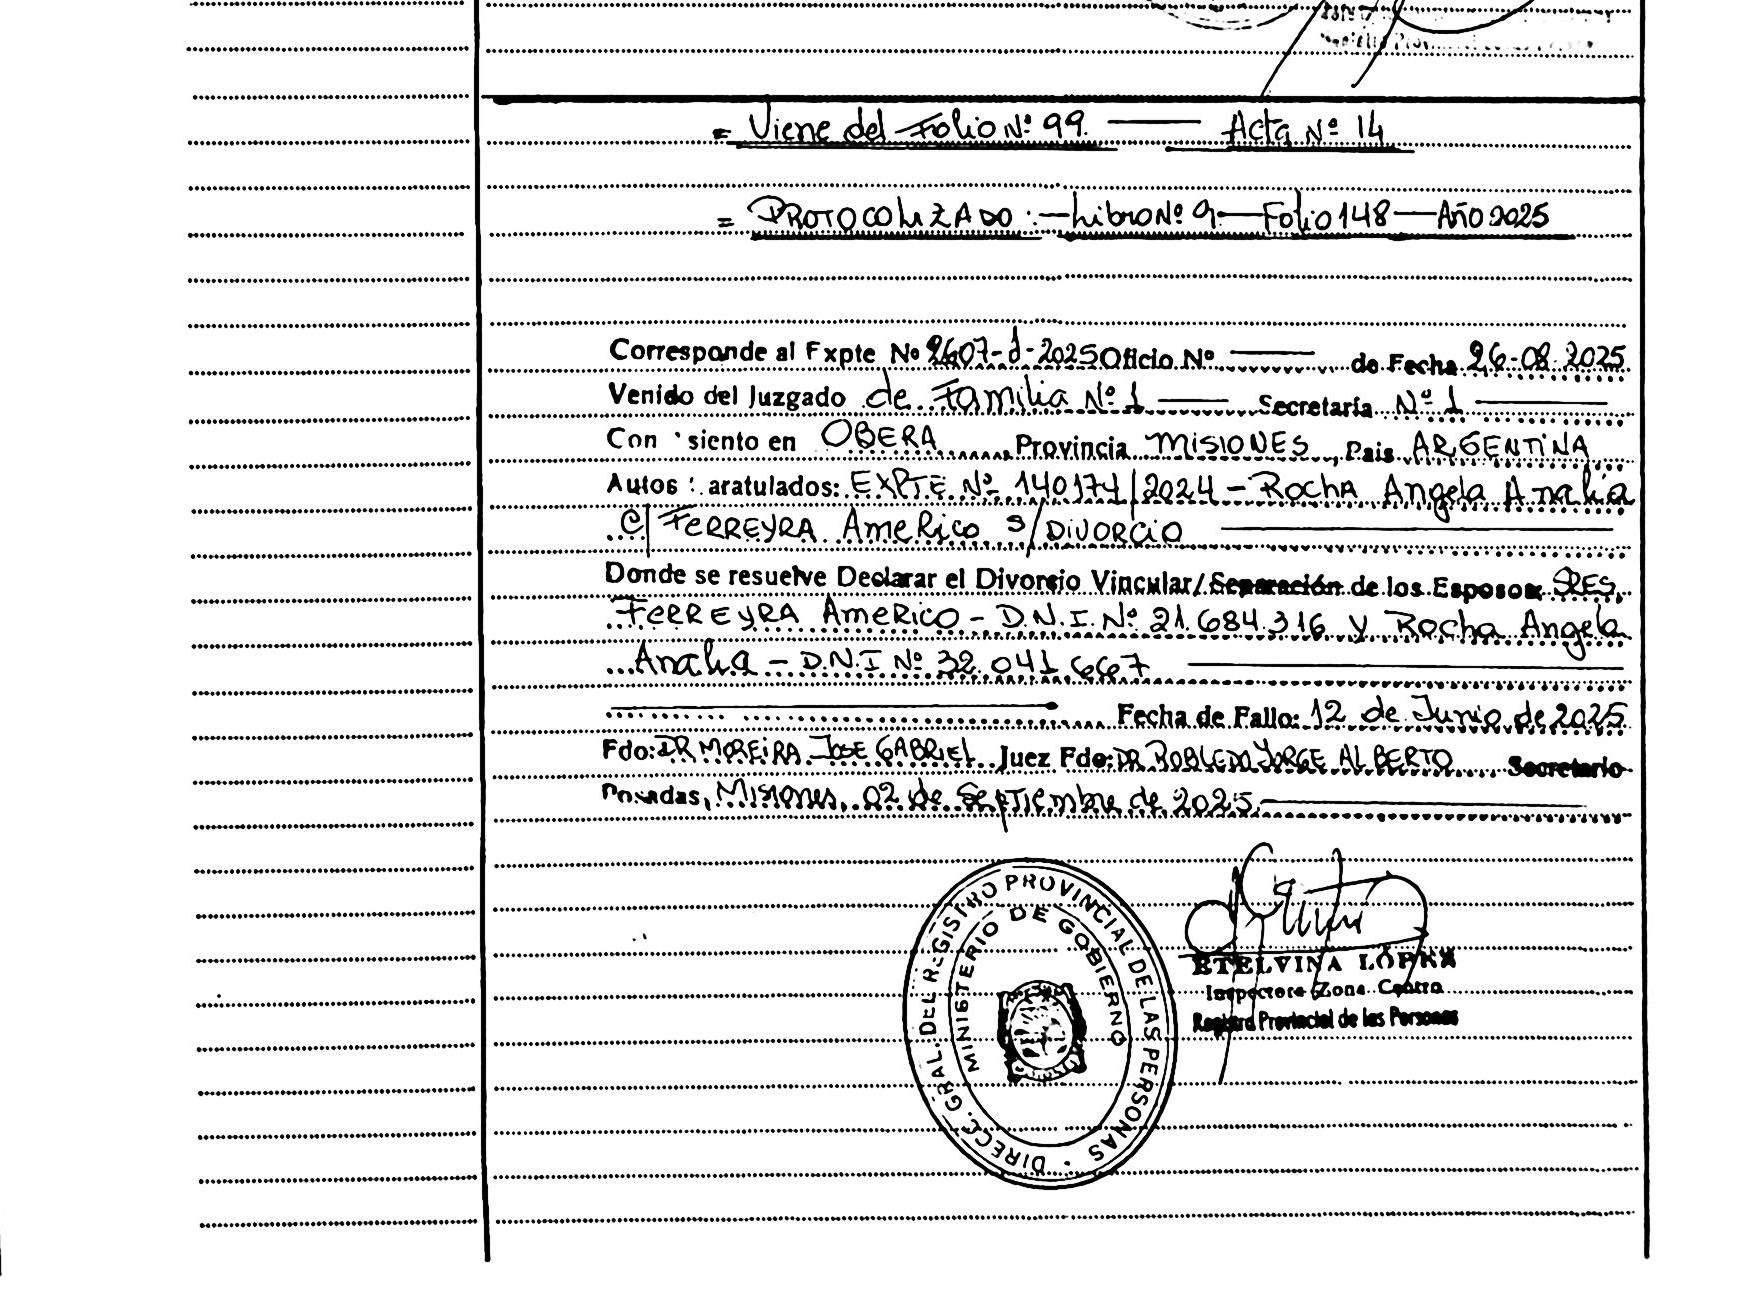 = Viene del Folio Nº 99. — Acta Nº 14
= PROTOCOLIZADO: — Libro Nº 9 — Folio 148 — Año 2025
Corresponde al Expte Nº 2607-d-2025 Oficio Nº — de Fecha 26-08-2025
Venido del Juzgado de Familia Nº 1 — Secretaría Nº 1 —
Con siento en OBERA Provincia MISIONES, Pais ARGENTINA
Autos : aratulados: EXPTE Nº 140174/2024 - Rocha Angela Analia
C/ FERREYRA AmeRico S/ DIVORCIO —
Donde se resuelve Declarar el Divorsio Vincular/Separación de los Esposos: SRES.
FERREYRA AmeRICO - D.N.I. Nº 21.684.316 y Rocha Angela
Analia - D.N.I Nº 32.041.667 —
Fecha de Fallo: 12 de Junio de 2025
Fdo: DR MOREIRA JOSE GABRIEL Juez Fdo: DR ROBLEDO JORGE ALBERTO Secretario
Posadas, Misiones, 02 de Septiembre de 2025 —
DIRECC. GRAL. DEL REGISTRO PROVINCIAL DE LAS PERSONAS
MINISTERIO DE GOBIERNO
ETELVINA LÓPEZ
Inspectora Zona Centro
Registro Provincial de las Personas